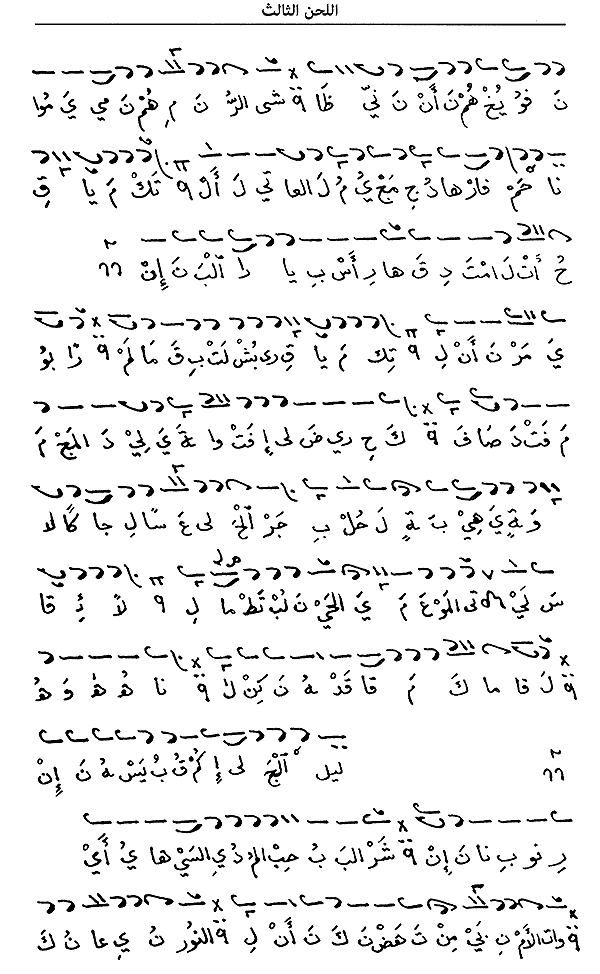 اللحن الثالث
نَ فو يُخْ هُمْ نَ أَنْ نَ نيّ ظَا ةَ شى الرُّ نَ مِ هُمْ نَ مي يَ مُوا
نا هُمْ فارْ هادُ جِ مَعْ يُ مُ لَ العا تي لَ أَلْ ةَ تَكْ مَ يا قِ
حُ أَنْتَ لَ امْتَ دِ قَ ها رِ أَسْ بِ يا اَلْبَ نَ إِنْ
يَ مَرْ نَ أَنْ لِ ةَ تِكَ مَ يا قِ ري بُشْ لَتْ بِ قَ مَا لَمْ ةَ ذا بُو
مَ فَتْ دَ صَا فَ ةَ كَ حِ ري ضَ لى إِ فَتْ وا ةَ يَ لِيْ دَ المَجْ مَ
وَ ةٍ يَ هِيْ بَ ةٍ لَ حُلْ بِ جَرْ اَلْحَ لى عَ سًا لِ جا كًا لا
سَ لَيْ تى المَوْ عَ مَ يَ الحَيْ نَ لُبْ تَطْ ما لِ ةَ لاَ ئِ قا
ةَ لَ قا ما كَ مَ قا قَدْ هُ نَ كِنْ لَ ةَ نا هُ هُ وَ هُ
ليل اَلْجَ لى إِ كُرْ قُ بُ يَسْ هُ نَ إِنْ
رِ نو بِ نا نَ إِنْ ةَ شَرْ البَ بُ حِبْ الم دُ يِ السَيْ ها يُ أَيْ
ةَ وات الأَمْ نِ بَيْ مِنْ تَ هَضْ نَ كَ نَ أَنْ لِ ةَ النُورْ نُ يِ عا نُ كَ